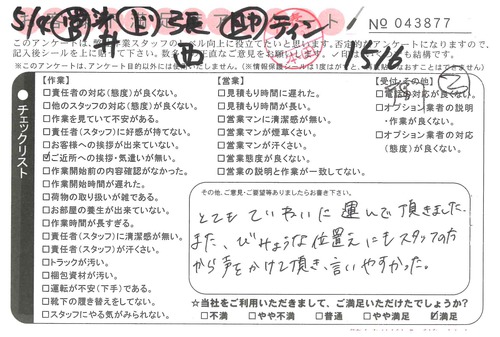 アンケート
No 043877
このアンケートは、業スタッフのレベル向上に役立てたいと思います。否定的なアンケートになりますので、
記入後シールを上に貼って下さい。
※このアンケートは、アンケート目的以外には使用いたしません。
チェックリスト
【作業】
□責任者の対応(態度)が良くない。
□他のスタッフの対応(態度)が良くない。
□作業を見ていて不安がある。
□責任者(スタッフ)に好感が持てない。
□お客様への挨拶が出来ていない。
☑ご近所への挨拶・気遣いが無い。
□作業開始前の内容確認がなかった。
□作業開始時間が遅れた。
□荷物の取り扱いが雑である。
□お部屋の養生が出来ていない。
□作業時間が長すぎる。
□責任者(スタッフ)に清潔感が無い。
□責任者(スタッフ)が汗くさい。
□トラックが汚い。
□梱包資材が汚い。
□運転が不安(下手)である。
□靴下の履き替えをしてない。
□スタッフにやる気がみられない。
【営業】
□見積もり時間に遅れた。
□見積もり時間が長い。
□営業マンに清潔感が無い。
□営業マンが煙草くさい。
□営業マンが汗くさい。
□営業態度が良くない。
□営業の説明と作業が一致してない。
【受付・その他】
□電話の対応が良くない。
□オプション業者の説明
・作業が良くない。
□オプション業者の対応
(態度)が良くない。
その他、ご意見・ご要望等ありましたらお書き下さい。
とてもていねいに運んで頂きました。
また、びみょうな位置えにもスタッフの方
から声をかけて頂き、言いやすかった。
☆当社をご利用いただきまして、ご満足いただけたでしょうか?
□不満 □やや不満 □普通 □やや満足 ☑満足